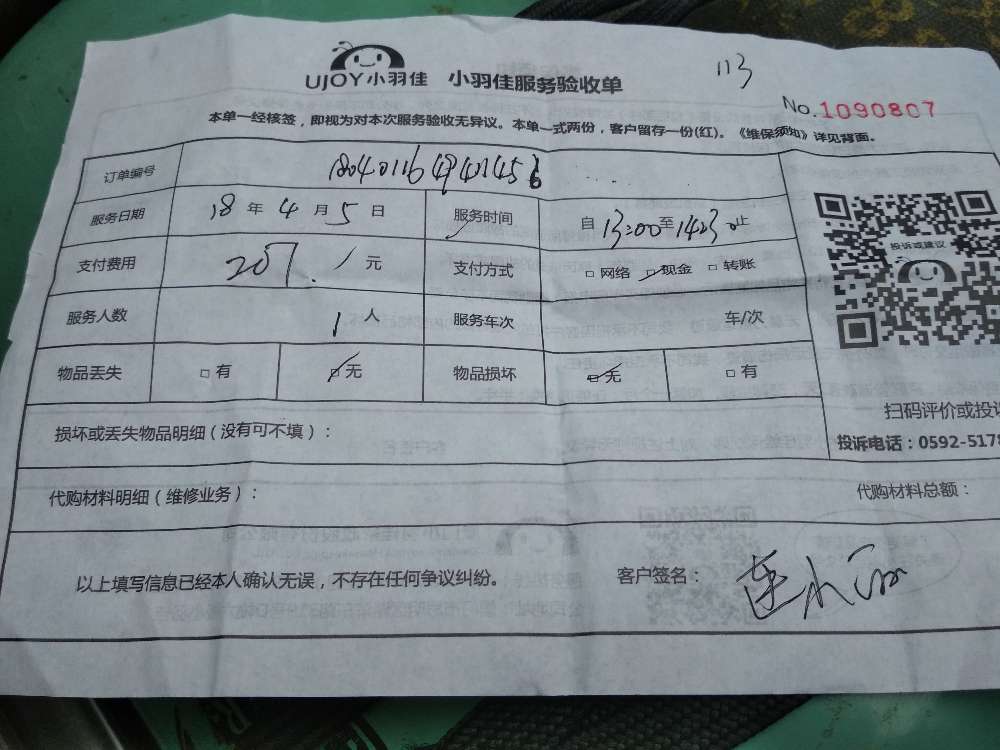 UJOY小羽佳 小羽佳服务验收单
113
No.1090807
本单一经核签，即视为对本次服务验收无异议。本单一式两份，客户留存一份(红)。《维保须知》详见背面。
订单编号
服务日期 18 年 4 月 5 日 服务时间 自 13:00 至 止
支付费用 元 支付方式 □ 网络 □ 现金 □ 转账
服务人数 1 人 服务车次 车/次
物品丢失 □ 有 □ 无 物品损坏 □ 无 □ 有
投诉或建议
扫码评价或投诉
投诉电话：0592-5178
损坏或丢失物品明细（没有可不填）：
代购材料明细（维修业务）： 代购材料总额：
以上填写信息已经本人确认无误，不存在任何争议纠纷。 客户签名：